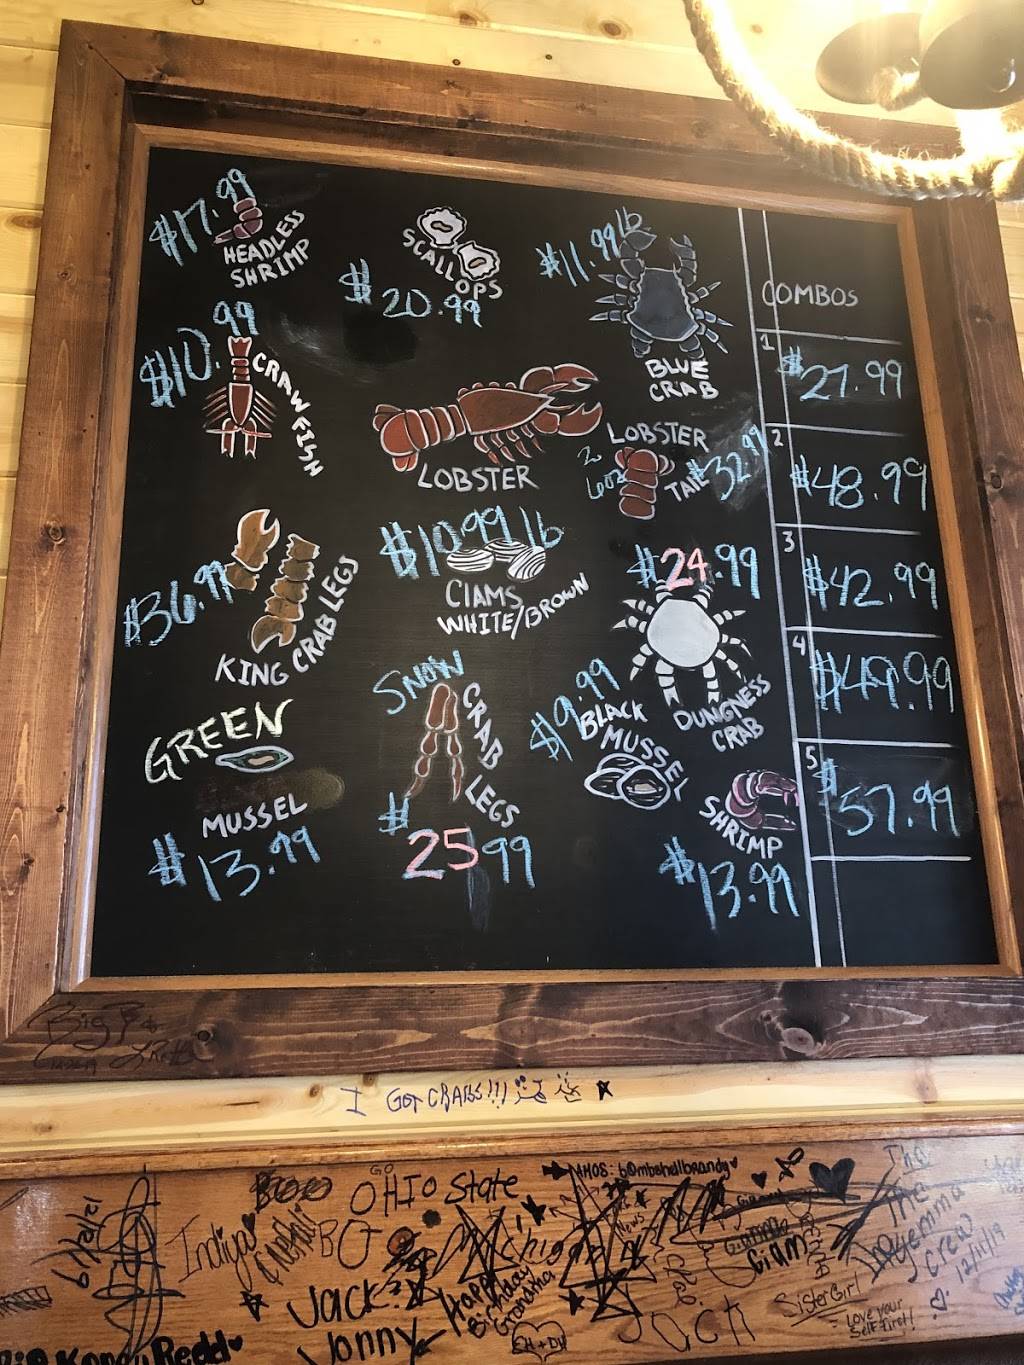 $17.99
HEADLESS
SHRIMP
SCALL
OPS
$20.99
$11.99 lb
BLUE
CRAB
$10.99
CRAWFISH
LOBSTER
LOBSTER
TAIL
2
6oz
$32.99
$36.99
KING CRAB LEGS
$10.99 lb
ClAMS
WHITE/BROWN
$24.99
DUNGNESS
CRAB
GREEN
MUSSEL
$13.99
SNOW
CRAB LEGS
$25.99
$9.99
BLACK
MUSSEL
SHRIMP
$13.99
COMBOS
1 $27.99
2 $48.99
3 $42.99
4 $49.99
5 $57.99
Big
I GOT CRABS!!!
GO
OHIO State
MHOS: bombshellbrandy
6/12/21
Indiya
Jack
Jonny
Happy
Birthday
Grandma
Ciam
The
Crew
12/11/19
SisterGirl
Love your
Self First!
Redd